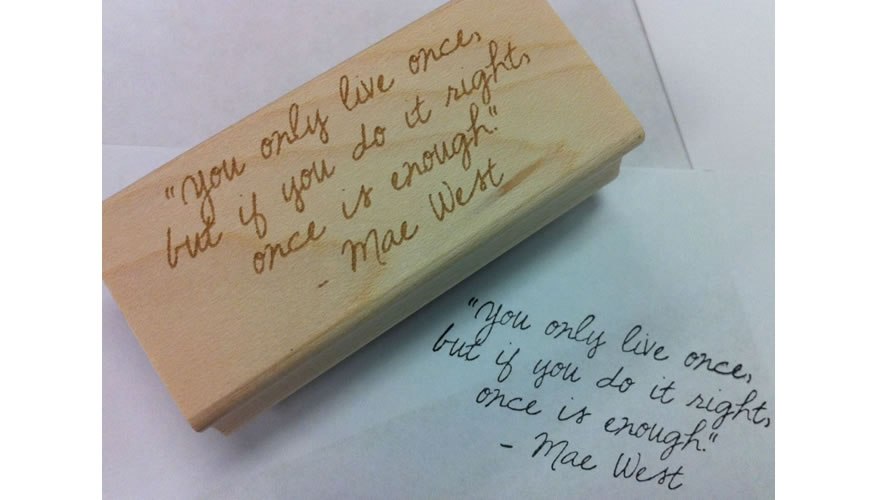 "You only live once,
but if you do it right,
once is enough."
- Mae West
"You only live once,
but if you do it right,
once is enough."
- Mae West